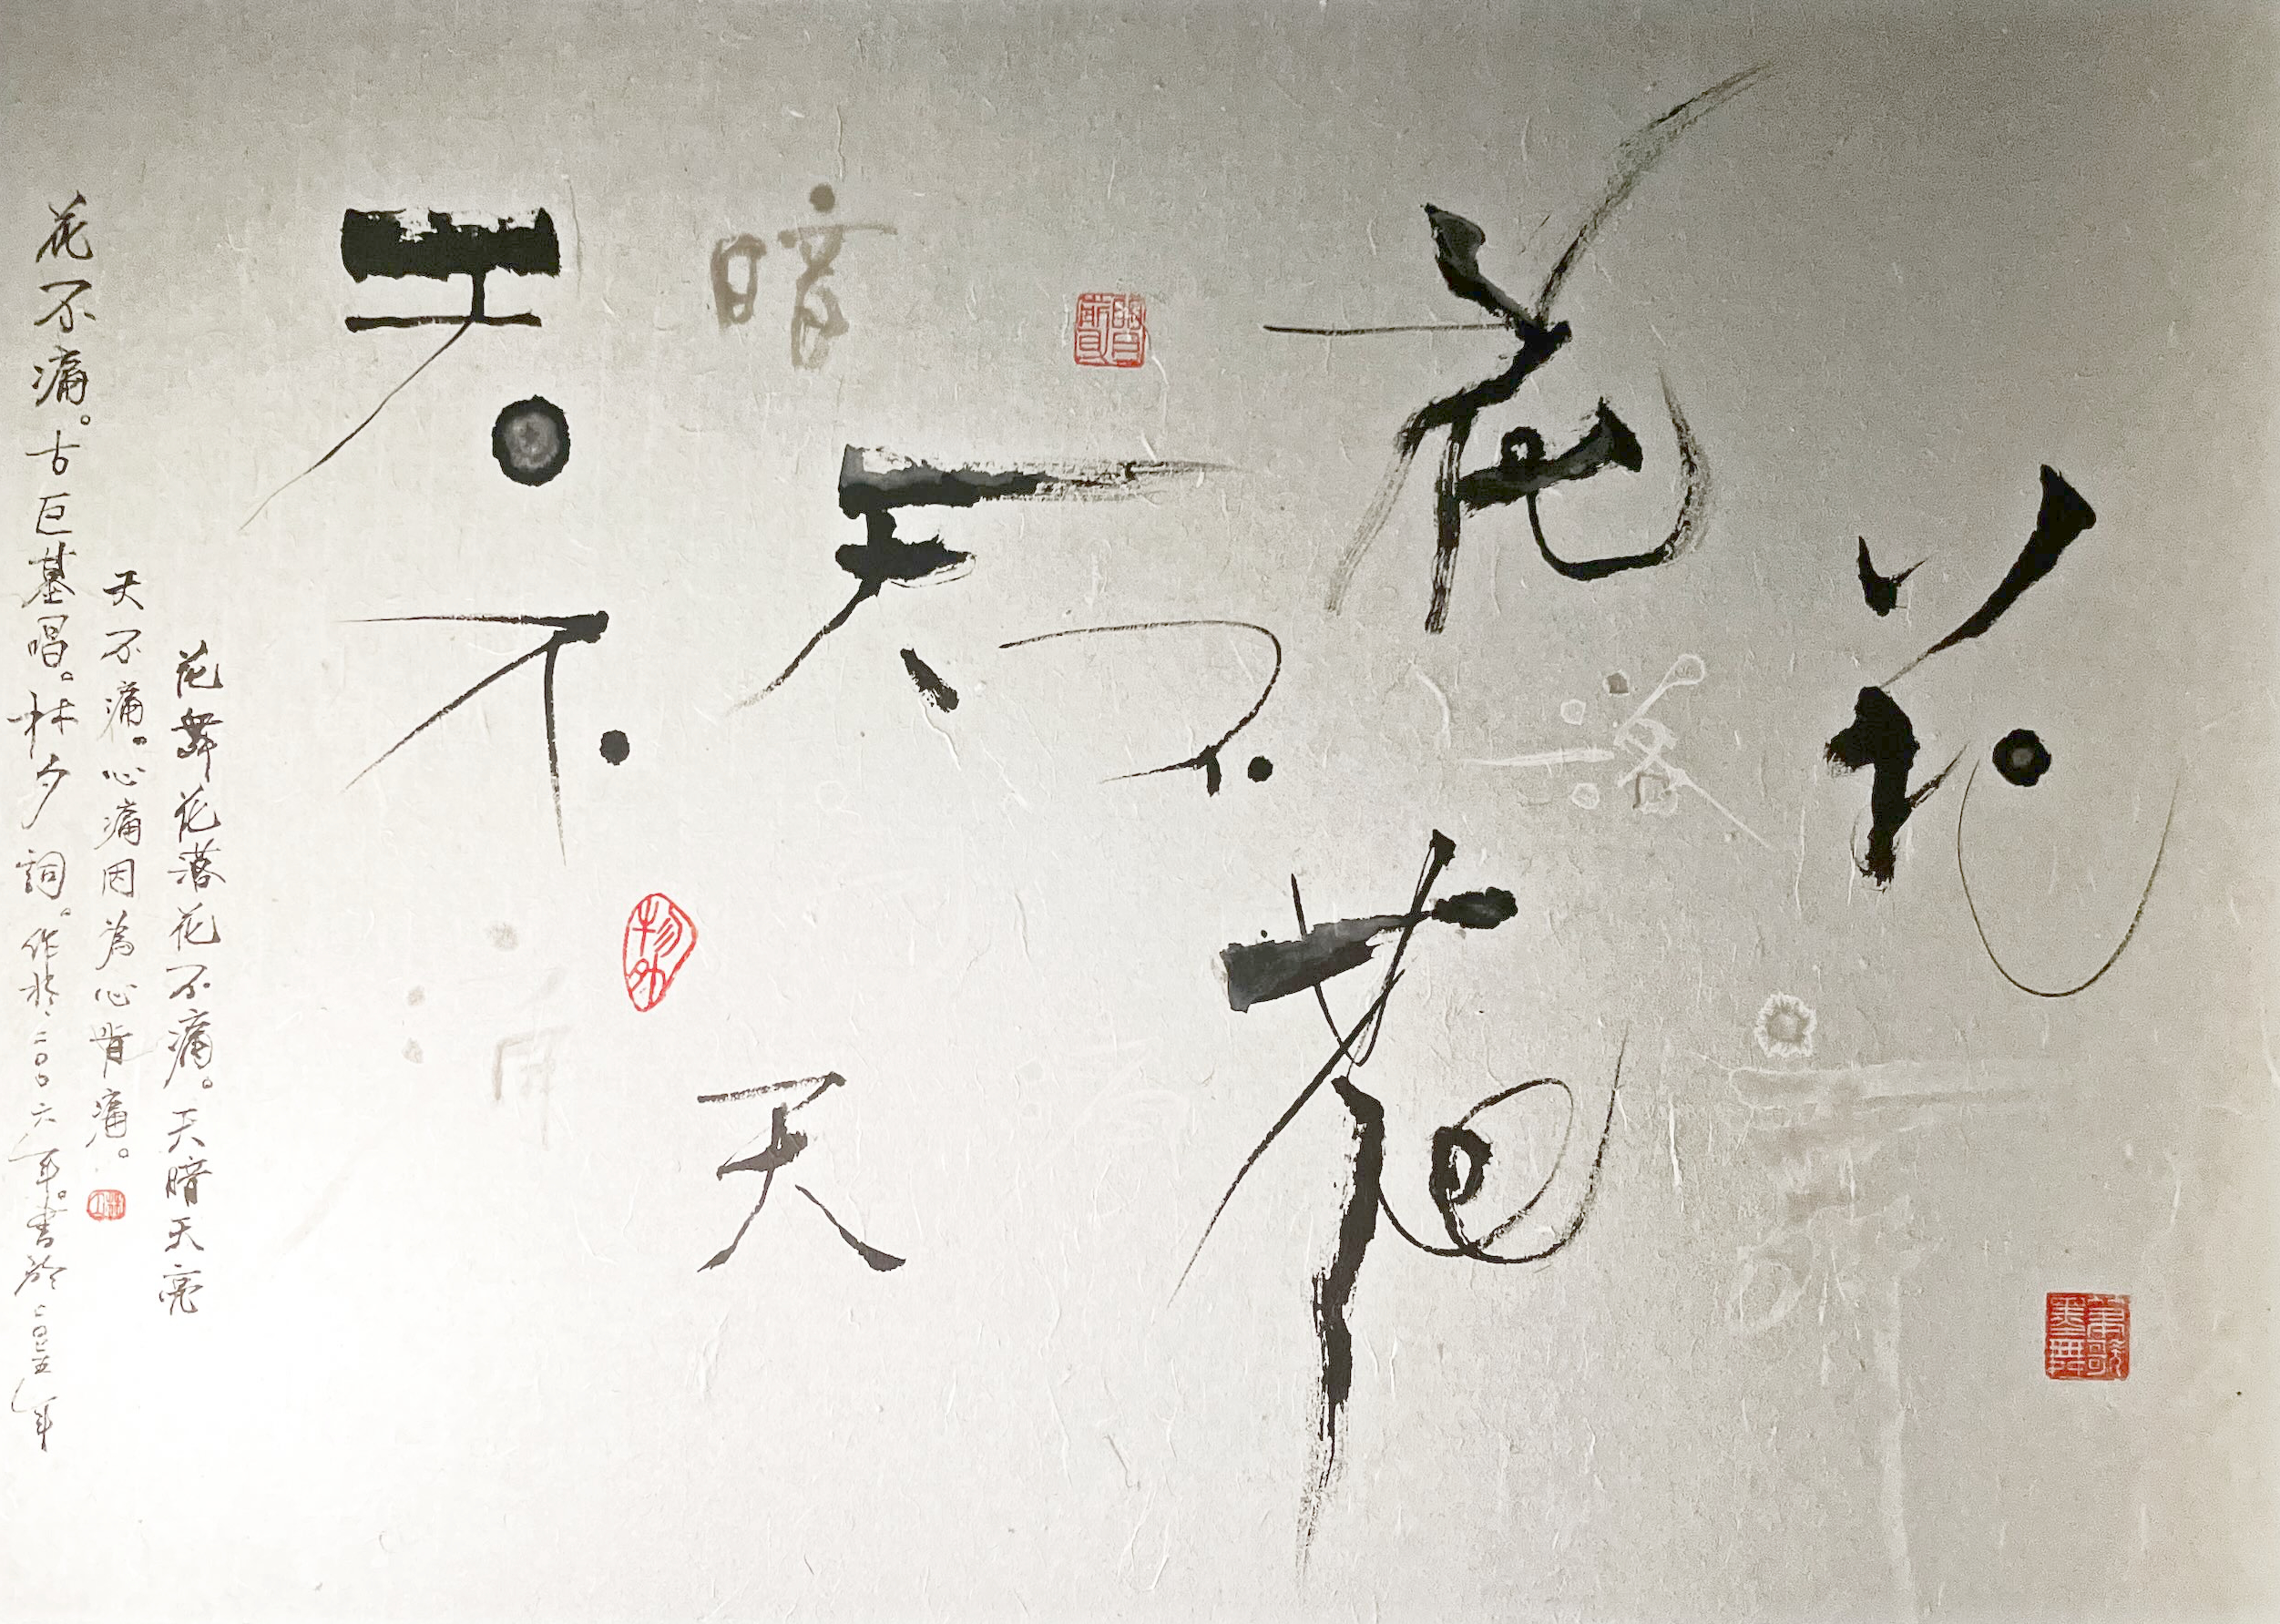 花舞
花落花
不
天
暗天
天不痛
花舞花落花不痛。天暗天亮
天不痛。心痛因為心肯痛。
花不痛。古巨基唱。林夕詞。作於二〇〇六年。書於二〇二五年
筆歌墨舞
物外